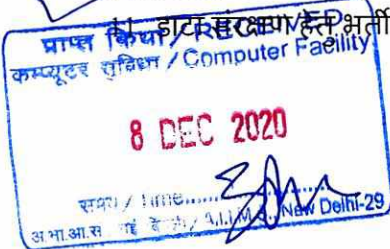 11. डाटा संरक्षण हेतु भर्ती
प्राप्त किया / RECEIVED
कम्प्यूटर सुविधा / Computer Facility
8 DEC 2020
समय / Time......
अ.भा.आ.स. नई / A.I.I.M.S., New Delhi-29